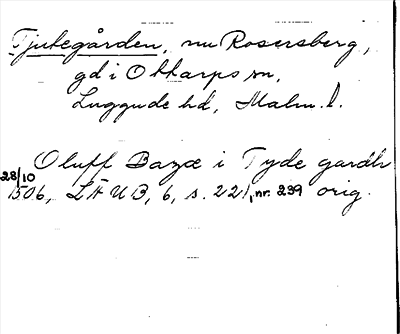 Tjutegården, nu Rosersberg,
gd i Ottarps sn,
Luggude hd, Malm. l.
Oluff Bagæ i Tyde gardh
28/10 1506, LÄUB, 6, s. 221, nr. 239 orig.